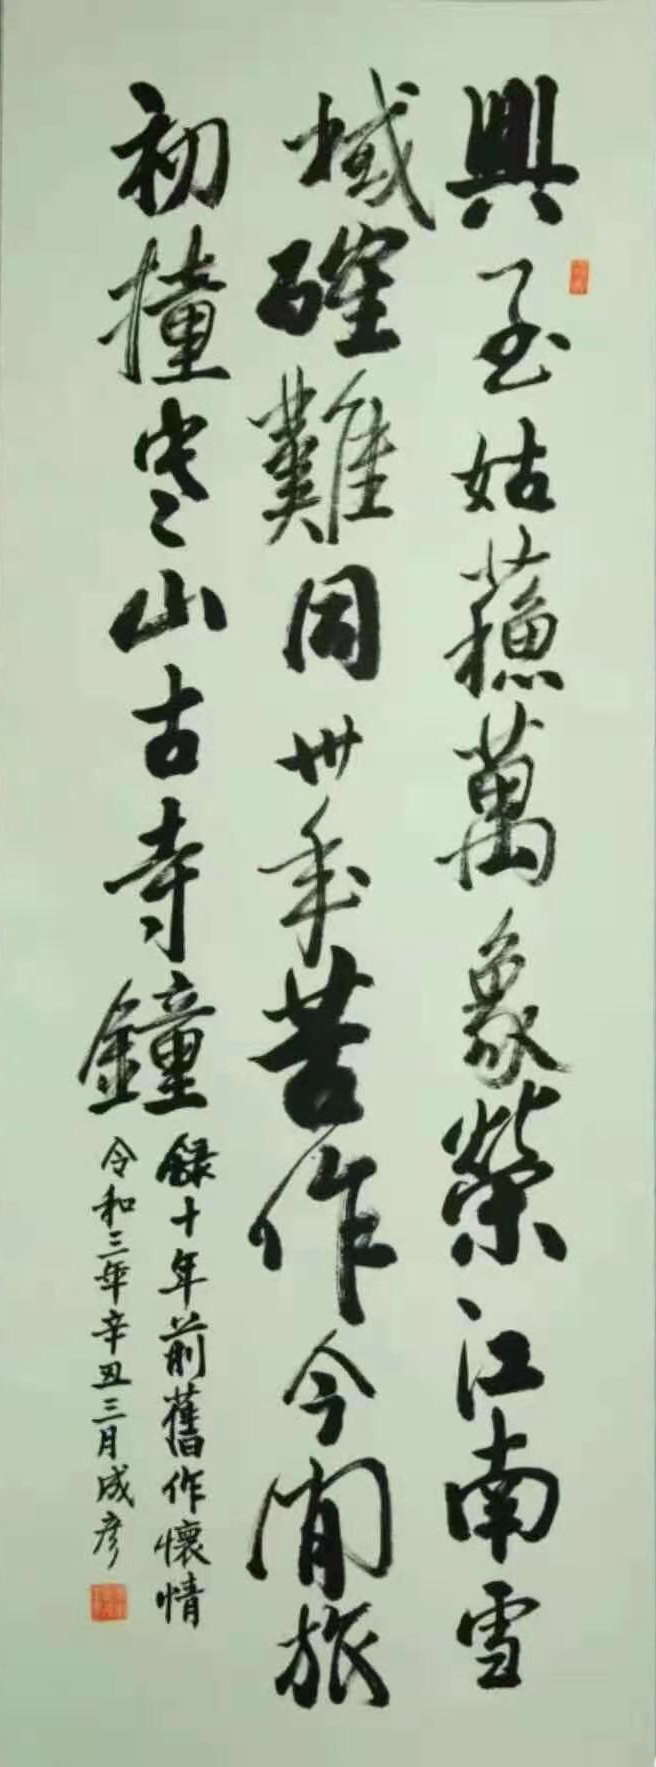 興至姑蘓萬象榮江南雪
域確難同卅年苦作今閒旅
初撞寒山古寺鐘
錄十年前舊作懷情
令和三年辛丑三月成彥